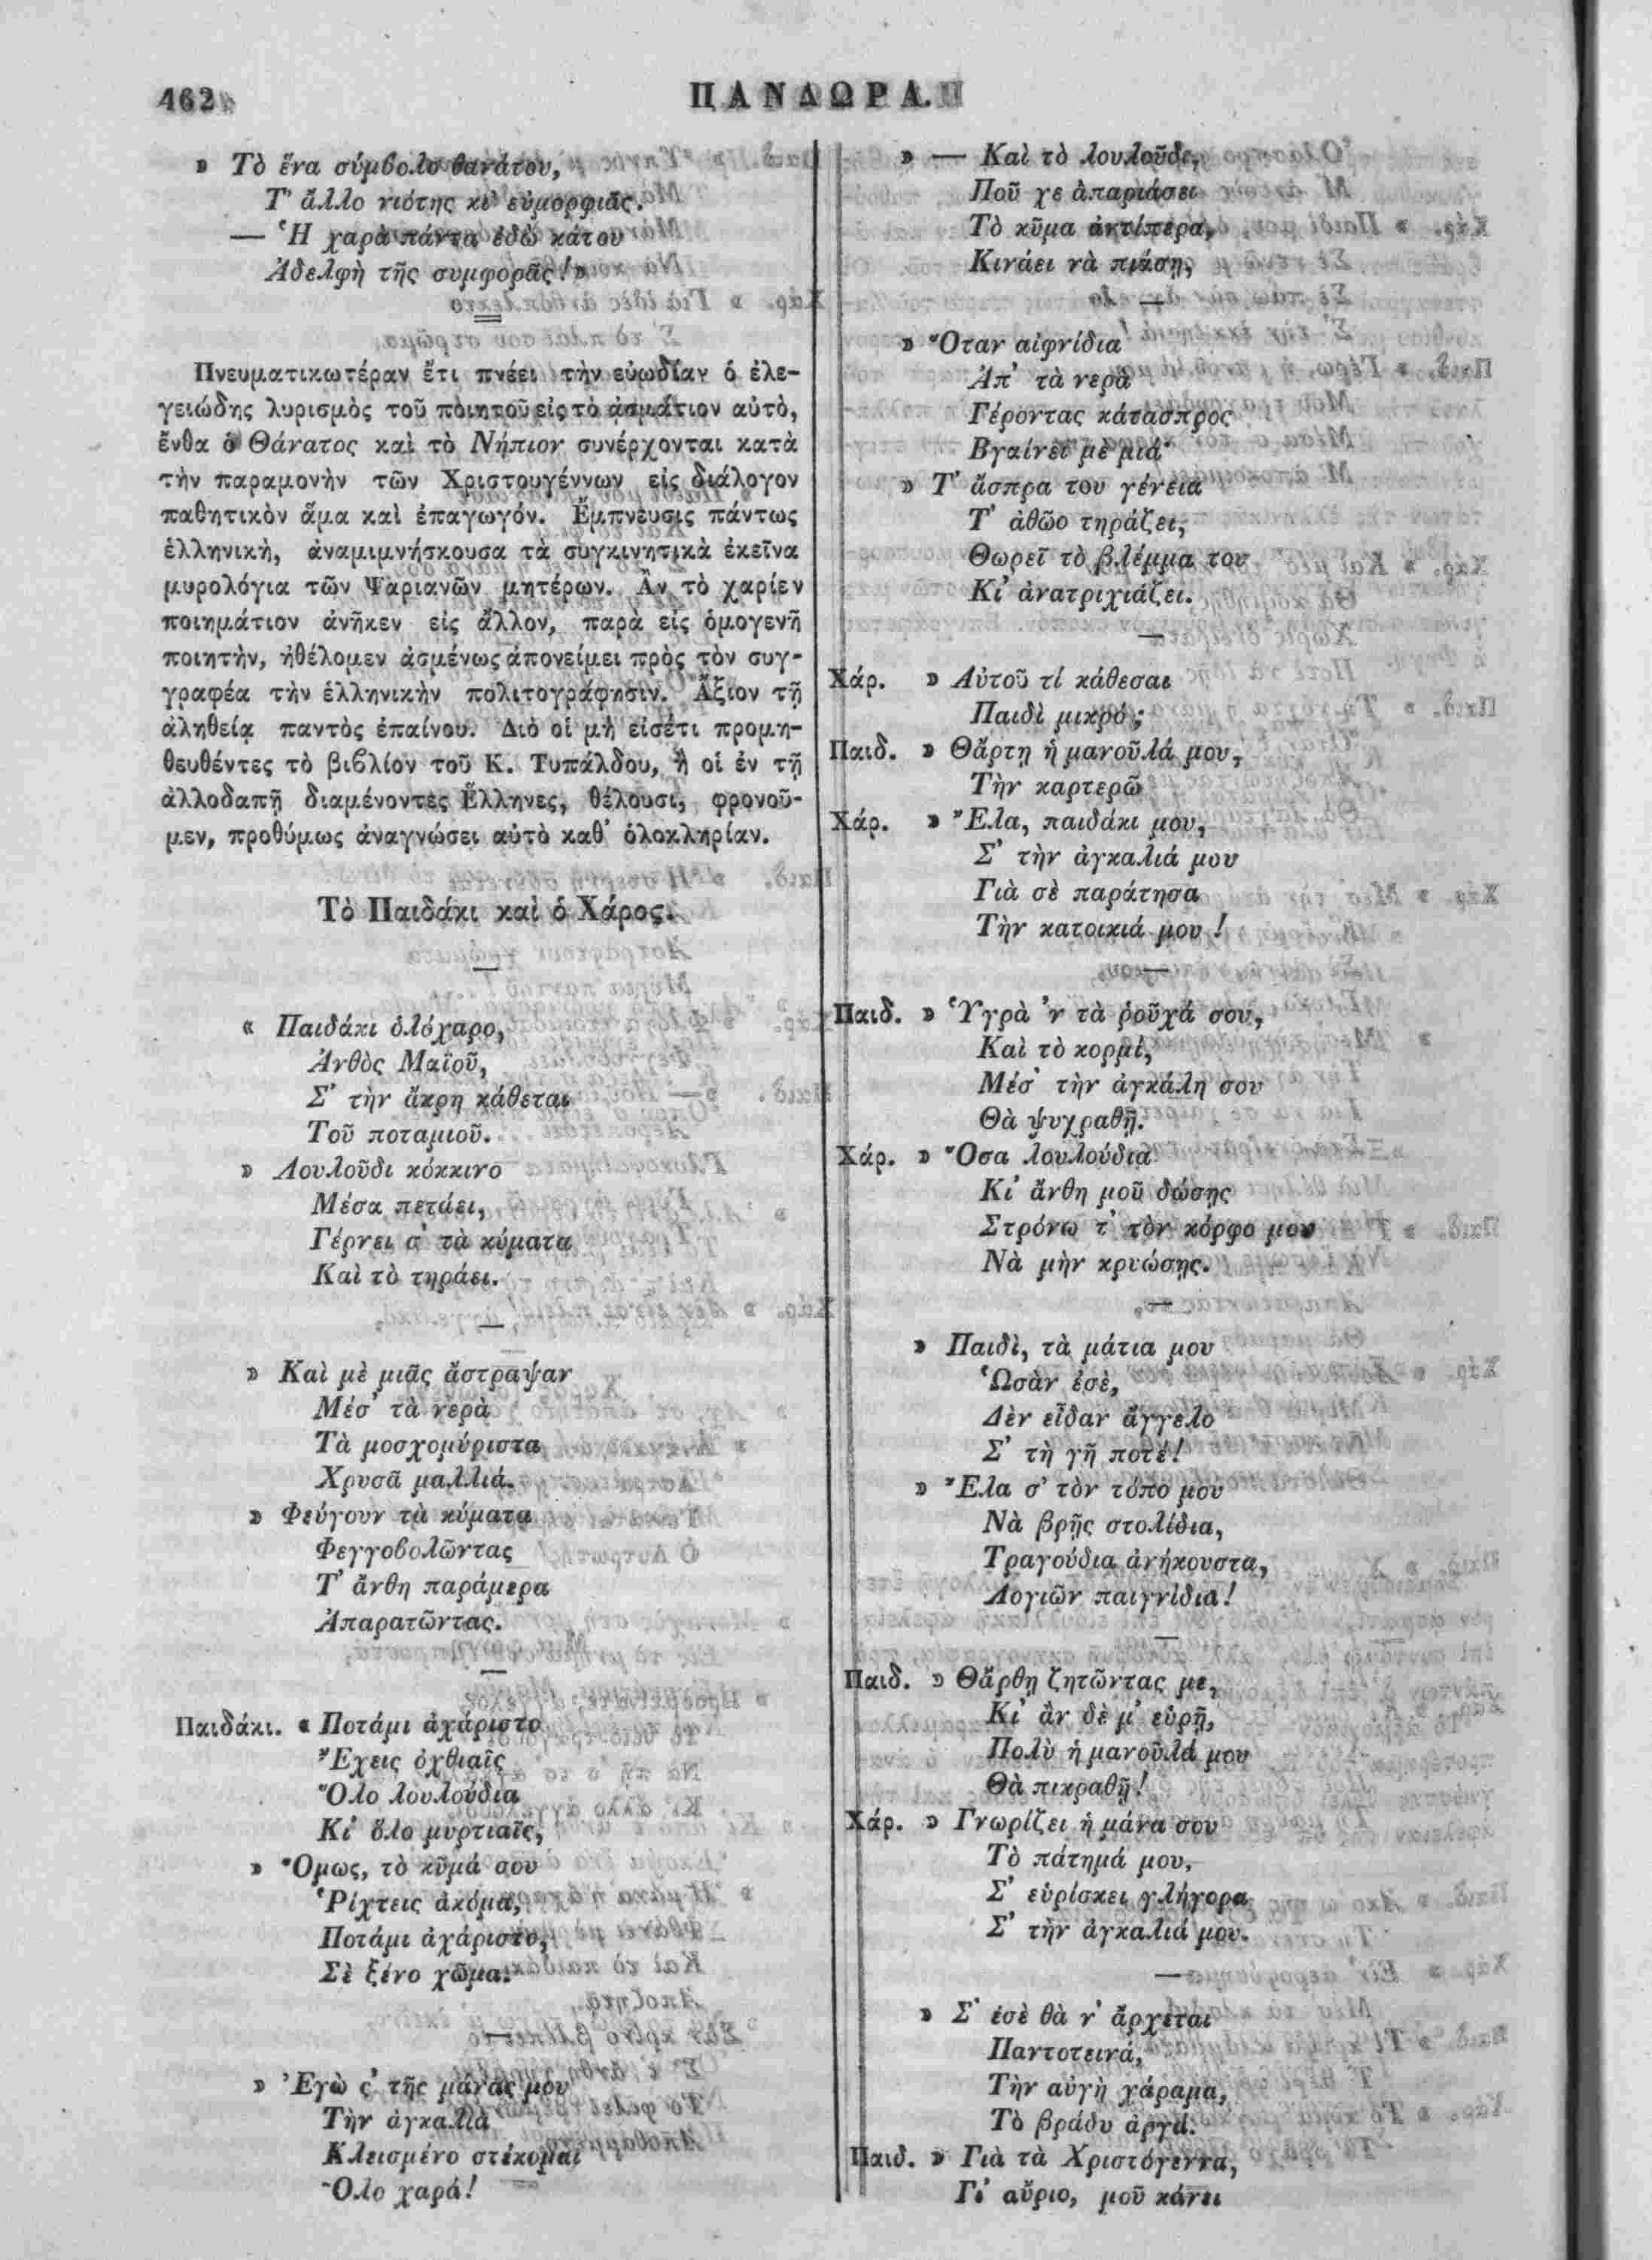 162
ΠΑΝΔΩΡΑ.
» Τὸ ἕνα σύμβολο θανάτου,
Τ' ἄλλο νιότης κι' εὐμορφιᾶς.
— Ἡ χαρὰ πάντα ἐδῶ κάτου
Ἀδελφὴ τῆς συμφορᾶς!»
Πνευματικωτέραν ἔτι πνέει τὴν εὐωδίαν ὁ ἐλε-
γειώδης λυρισμὸς τοῦ ποιητοῦ εἰς τὸ ᾀσμάτιον αὐτὸ,
ἔνθα ὁ Θάνατος καὶ τὸ Νήπιον συνέρχονται κατὰ
τὴν παραμονὴν τῶν Χριστουγέννων εἰς διάλογον
παθητικὸν ἅμα καὶ ἐπαγωγόν. Ἔμπνευσις πάντως
ἑλληνικὴ, ἀναμιμνήσκουσα τὰ συγκινητικὰ ἐκεῖνα
μυρολόγια τῶν Ψαριανῶν μητέρων. Ἂν τὸ χαρίεν
ποιημάτιον ἀνῆκεν εἰς ἄλλον, παρὰ εἰς ὁμογενῆ
ποιητὴν, ἠθέλομεν ἀσμένως ἀπονείμει πρὸς τὸν συγ-
γραφέα τὴν ἑλληνικὴν πολιτογράφησιν. Ἄξιον τῇ
ἀληθείᾳ παντὸς ἐπαίνου. Διὸ οἱ μὴ εἰσέτι προμη-
θευθέντες τὸ βιβλίον τοῦ Κ. Τυπάλδου, ἢ οἱ ἐν τῇ
ἀλλοδαπῇ διαμένοντες Ἕλληνες, θέλουσι, φρονοῦ-
μεν, προθύμως ἀναγνώσει αὐτὸ καθ' ὁλοκληρίαν.
Τὸ Παιδάκι καὶ ὁ Χάρος.
« Παιδάκι ὁλόχαρο,
Ἀνθὸς Μαΐοῦ,
Σ' τὴν ἄκρη κάθεται
Τοῦ ποταμιοῦ.
» Λουλοῦδι κόκκινο
Μέσα πετάει,
Γέρνει σ' τὰ κύματα
Καὶ τὸ τηράει.
» Καὶ μὲ μιᾶς ἄστραψαν
Μέσ' τὰ νερὰ
Τὰ μοσχομύριστα
Χρυσᾶ μαλλιά.
» Φεύγουν τὰ κύματα
Φεγγοβολῶντας
Τ' ἄνθη παράμερα
Ἀπαρατῶντας.
Παιδάκι. « Ποτάμι ἀχάριστο
Ἔχεις ὀχθιαῖς
Ὅλο λουλούδια
Κι' ὅλο μυρτιαῖς,
» Ὅμως, τὸ κῦμά σου
Ῥίχτεις ἀκόμα,
Ποτάμι ἀχάριστο,
Σὲ ξένο χῶμα.
» Ἐγὼ ς' τῆς μάνας μου
Τὴν ἀγκαλιὰ
Κλεισμένο στέκομαι
Ὅλο χαρά!
» — Καὶ τὸ λουλοῦδε,
Ποῦ χε ἀπαριάσει
Τὸ κῦμα ἀντίπερα,
Κινάει νὰ πιάσῃ,
» Ὅταν αἰφνίδια
Ἀπ' τὰ νερὰ
Γέροντας κάτασπρος
Βγαίνει μὲ μιά·
» Τ' ἄσπρα του γένεια
Τ' ἀθῶο τηράζει,
Θωρεῖ τὸ βλέμμα του
Κι' ἀνατριχιάζει.
Χάρ. » Αὐτοῦ τί κάθεσαι
Παιδὶ μικρό;
Παιδ. » Θἄρτῃ ἡ μανοῦλά μου,
Τὴν καρτερῶ
Χάρ. » Ἔλα, παιδάκι μου,
Σ' τὴν ἀγκαλιά μου
Γιὰ σὲ παράτησα
Τὴν κατοικιά μου!
Παιδ. » Ὑγρὰ 'ν τὰ ῥοῦχά σου,
Καὶ τὸ κορμὶ,
Μέσ' τὴν ἀγκάλη σου
Θὰ ψυχραθῇ.
Χάρ. » Ὅσα λουλούδια
Κι' ἄνθη μοῦ δώσῃς
Στρόνω τ' τὸν κόρφο μου
Νὰ μὴν κρυώσῃς.
» Παιδὶ, τὰ μάτια μου
Ὡσὰν ἐσὲ,
Δὲν εἶδαν ἄγγελο
Σ' τὴ γῆ ποτέ!
» Ἔλα σ' τὸν τόπο μου
Νὰ βρῇς στολίδια,
Τραγούδια ἀνήκουστα,
Λογιῶν παιγνίδια!
Παιδ. » Θἄρθῃ ζητῶντας με,
Κι' ἂν δὲ μ' εὑρῇ,
Πολὺ ἡ μανοῦλά μου
Θὰ πικραθῇ!
Χάρ. » Γνωρίζει ἡ μάνα σου
Τὸ πάτημά μου,
Σ' εὑρίσκει γλήγορα
Σ' τὴν ἀγκαλιά μου.
» Σ' ἐσὲ θὰ ν' ἄρχεται
Παντοτεινὰ,
Τὴν αὐγὴ χάραμα,
Τὸ βράδυ ἀργά.
Παιδ. » Γιὰ τὰ Χριστόγεννα,
Γι' αὔριο, μοῦ κάνει